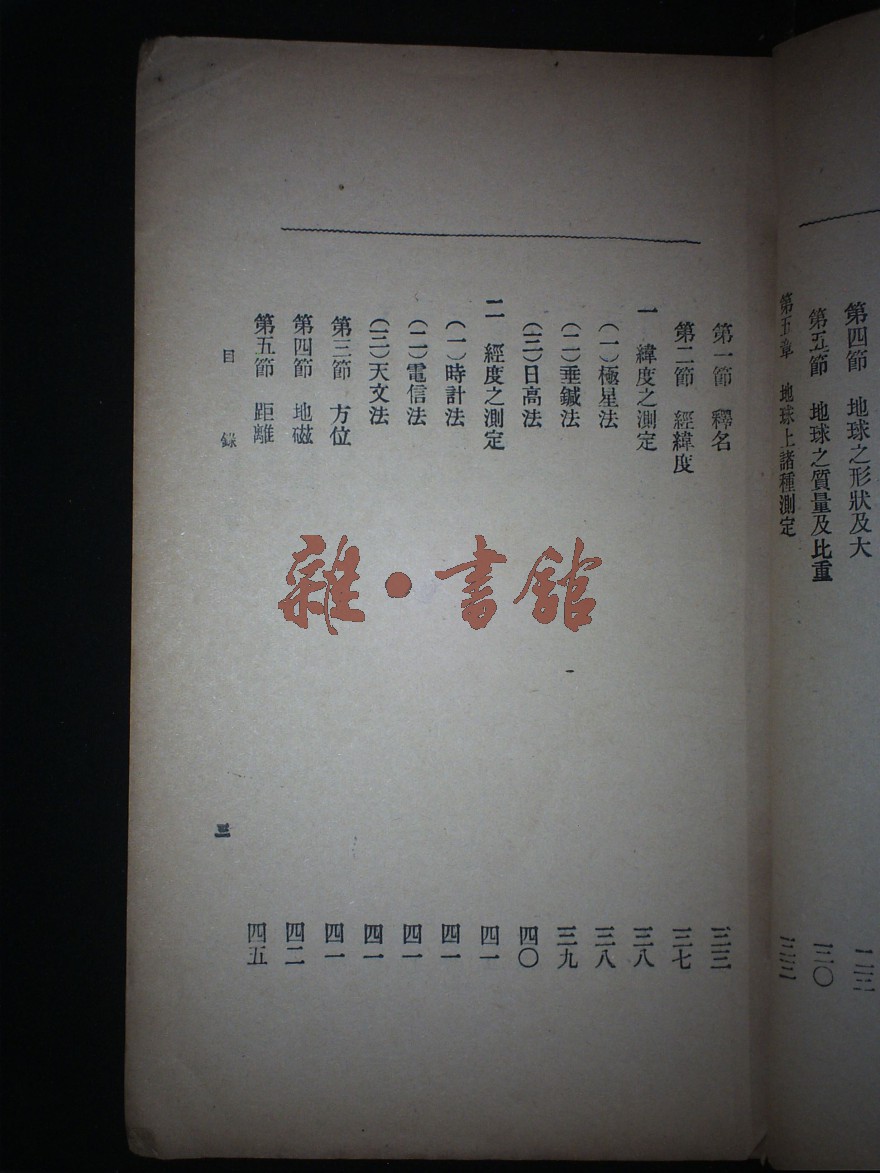 第四節 地球之形狀及大 二三
第五節 地球之質量及比重 三〇
第五章 地球上諸種測定 三三
第一節 釋名 三三
第二節 經緯度 三七
一 緯度之測定 三八
(一)極星法 三八
(二)垂鍼法 三九
(三)日高法 四〇
二 經度之測定 四一
(一)時計法 四一
(二)電信法 四一
(三)天文法 四一
第三節 方位 四一
第四節 地磁 四二
第五節 距離 四五
目錄 三
雜·書館